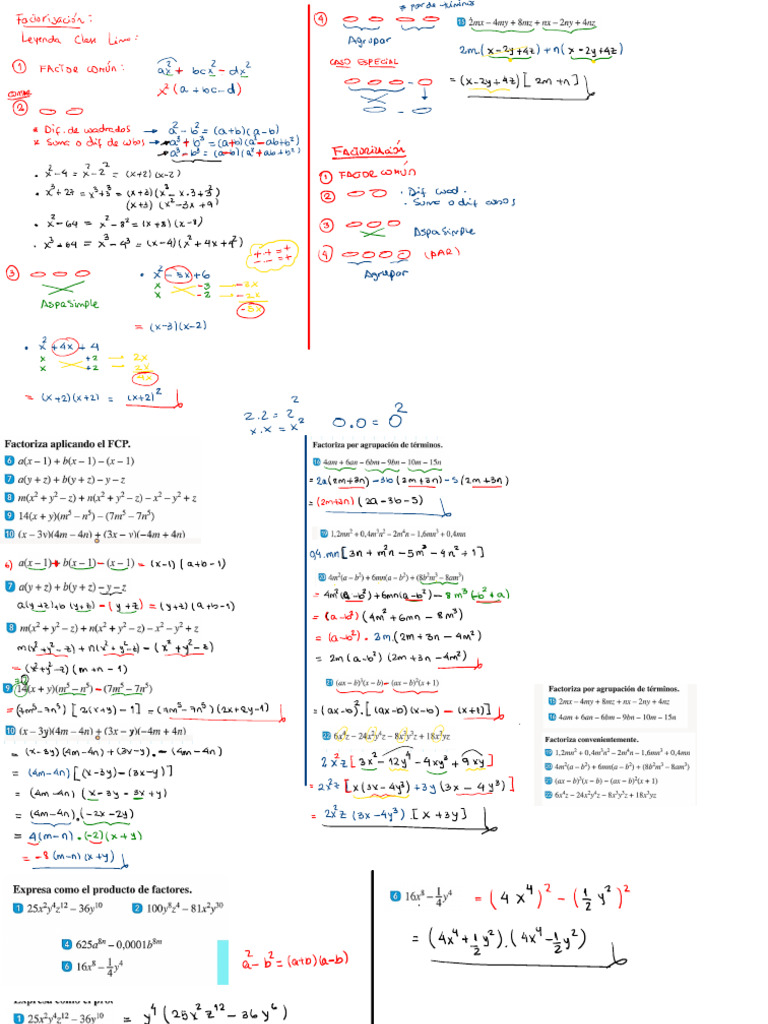 Factorización:
Leyenda Class Limo:
① FACTOR COMÚN: ax² + bcx² - dx²
x²(a + bc - d)
②
* Dif. de cuadrados → a² - b² = (a+b)(a-b)
* Suma o dif de cubos → a³ + b³ = (a+b)(a²-ab+b²)
→ a³ - b³ = (a-b)(a²+ab+b²)
• x² - 4 = x² - 2² = (x+2)(x-2)
• x³ + 27 = x³ + 3³ = (x+3)(x² - x.3 + 3²)
(x+3)(x² - 3x + 9)
• x² - 64 = x² - 8² = (x+8)(x-8)
• x³ - 64 = x³ - 4³ = (x-4)(x² + 4x + 4²)
+ + = +
- - = +
③
Aspa Simple
• x² - 5x + 6
x -3 → -3x
x -2 → -2x
-5x
= (x-3)(x-2)
• x² + 4x + 4
x +2 → 2x
x +2 → 2x
4x
= (x+2)(x+2) = (x+2)²
④
Agrupar
CASO ESPECIAL
11 2mx - 4my + 8mz + nx - 2ny + 4nz
2m(x - 2y + 4z) + n(x - 2y + 4z)
= (x - 2y + 4z)[2m + n]
Factorización
① FACTOR COMÚN
② • Dif cuad.
• Suma o dif cubos
③ Aspa Simple
④ (PAR)
Agrupar
2.2 = 2²
x.x = x²
0.0 = 0²
Factoriza aplicando el FCP.
6 a(x - 1) + b(x - 1) - (x - 1)
7 a(y + z) + b(y + z) - y - z
8 m(x² + y² - z) + n(x² + y² - z) - x² - y² + z
9 14(x + y)(m⁵ - n⁵) - (7m⁵ - 7n⁵)
10 (x - 3y)(4m - 4n) + (3x - y)(-4m + 4n)
6) a(x - 1) + b(x - 1) - (x - 1) = (x-1)(a+b-1)
7 a(y + z) + b(y + z) - y - z
a(y+z)+b(y+z) - (y+z) = (y+z)(a+b-1)
8 m(x² + y² - z) + n(x² + y² - z) - x² - y² + z
m(x²+y²-z)+n(x²+y²-z) - (x²+y²-z)
= (x²+y²-z)(m+n-1)
9 14(x + y)(m⁵ - n⁵) - (7m⁵ - 7n⁵)
= (7m⁵-7n⁵)[2(x+y) - 1] = (7m⁵-7n⁵)(2x+2y-1)
10 (x - 3y)(4m - 4n) + (3x - y)(-4m + 4n)
= (x-3y)(4m-4n) + (3x-y). -(4m-4n)
= (4m-4n)[(x-3y) - (3x-y)]
= (4m-4n)(x-3y-3x+y)
= (4m-4n).(-2x-2y)
= 4(m-n).(-2)(x+y)
= -8(m-n)(x+y)
Factoriza por agrupación de términos.
16 4am + 6an - 6bm - 9bn - 10m - 15n
= 2a(2m+3n) - 3b(2m+3n) - 5(2m+3n)
= (2m+3n)(2a-3b-5)
19 1,2mn² + 0,4m³n² - 2m⁴n - 1,6mn³ + 0,4mn
0,4.mn[3n + m²n - 5m³ - 4n² + 1]
20 4m²(a - b²) + 6mn(a - b²) + (8b²m³ - 8am³)
= 4m²(a-b²) + 6mn(a-b²) - 8m³(-b²+a)
= (a-b²)(4m²+6mn-8m³)
= (a-b²). 2m.(2m+3n-4m²)
= 2m(a-b²)(2m+3n-4m²)
21 (ax - b)²(x - b) - (ax - b)²(x + 1)
= (ax-b)².[(x-b) - (x+1)]
22 6x⁴z - 24x²y⁴z - 8x³y³z + 18x³yz
2x²z[3x² - 12y⁴ - 4xy³ + 9xy]
= 2x²z[x(3x-4y³)+3y(3x-4y³)]
= 2x²z(3x-4y³).[x+3y]
Factoriza por agrupación de términos.
15 2mx - 4my + 8mz + nx - 2ny + 4nz
16 4am + 6an - 6bm - 9bn - 10m - 15n
Factoriza convenientemente.
19 1,2mn² + 0,4m³n² - 2m⁴n - 1,6mn³ + 0,4mn
20 4m²(a - b²) + 6mn(a - b²) + (8b²m³ - 8am³)
21 (ax - b)²(x - b) - (ax - b)²(x + 1)
22 6x⁴z - 24x²y⁴z - 8x³y³z + 18x³yz
Expresa como el producto de factores.
1 25x²y⁴z¹² - 36y¹⁰
2 100y⁸z⁴ - 81x²y³⁰
4 625a⁸ⁿ - 0,0001b⁸ᵐ
6 16x⁸ - 1/4 y⁴
a² - b² = (a+b)(a-b)
6 16x⁸ - 1/4 y⁴ = (4x⁴)² - (1/2 y²)²
= (4x⁴ + 1/2 y²).(4x⁴ - 1/2 y²)
Expresa como el pro
1 25x²y⁴z¹² - 36y¹⁰ = y⁴(25x²z¹² - 36y⁶)